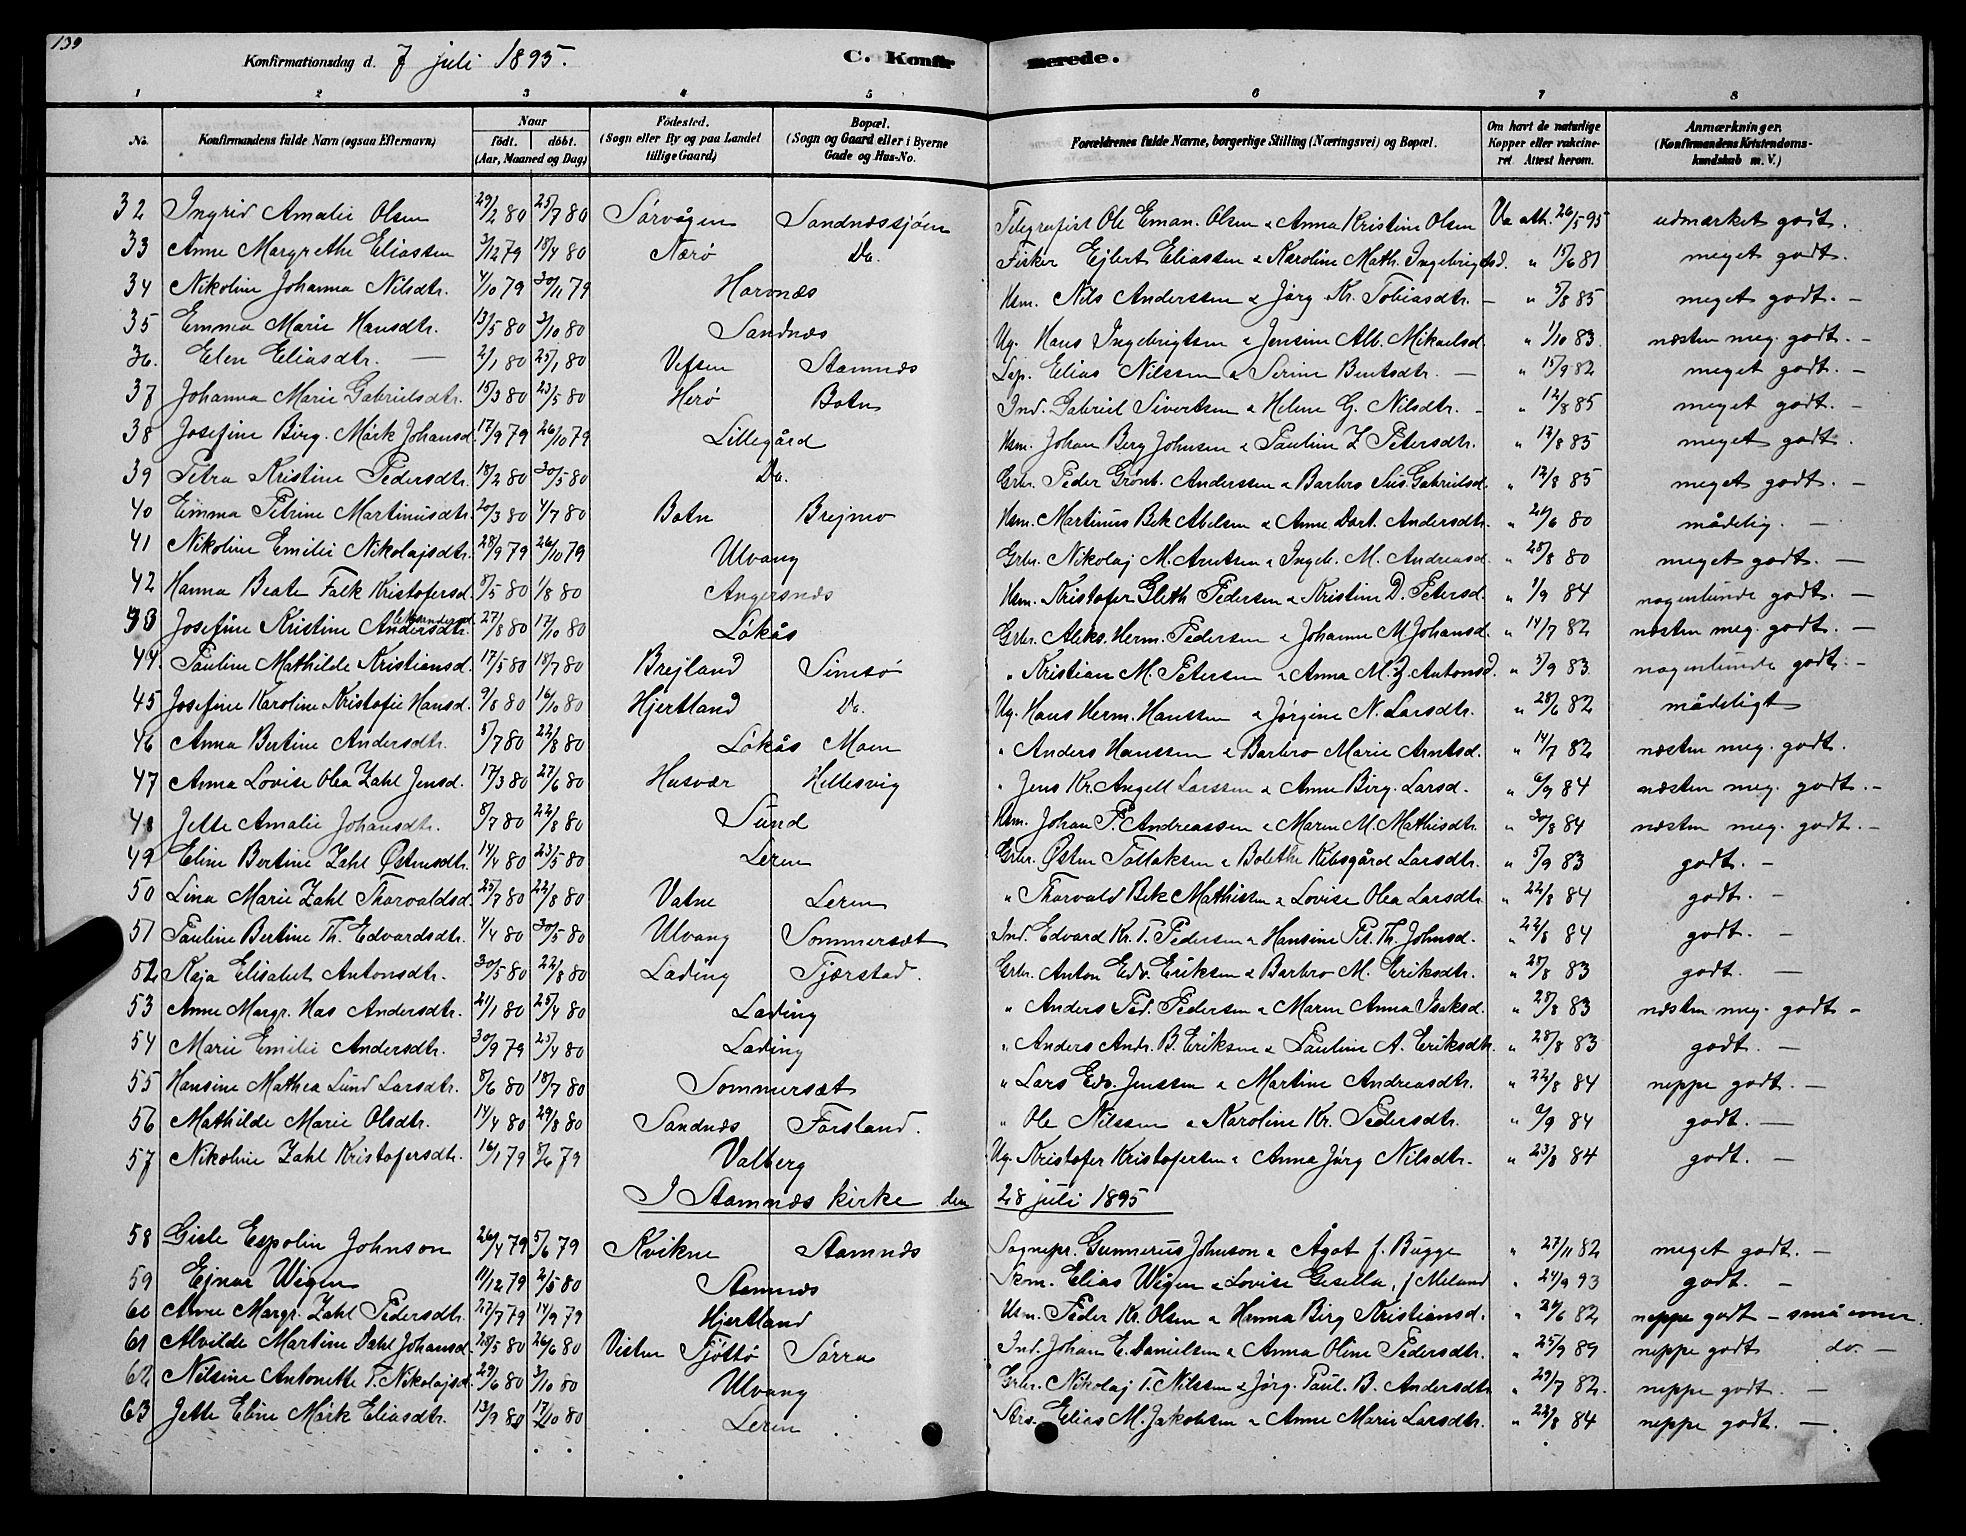 139
Konfirmationsdag d. 7 juli 1895. C. Konfirmerede.
1 2 3 4 5 6 7 8
No. Konfirmandens fulde Navn (ogsaa Efternavn) Naar født. døbt. (Aar, Maaned og Dag) Fødested. (Sogn eller By og paa Landet tillige Gaard) Bopæl. (Sogn og Gaard eller i Byerne Gade og Hus-No. Forældrenes fulde Navne, borgerlige Stilling (Næringsvei) og Bopæl. Om havt de naturlige Kopper eller vakcineret. Attest herom. Anmærkninger. (Konfirmandens Kristendomskundskab m. V.)
32 Ingrid Amalie Olsen 29/2 80 25/7 80 Sørvågen Sandnessjøen Telegrafist Ole Eman. Olsen & Anna Kristine Olsen Va. ath. 26/5 95 udmærket godt.
33 Anne Margrethe Eliassen 3/12 79 18/4 80 Nærø Do. Fisker Ejlert Eliassen & Karoline Math. Ingebrigtsd. " 15/6 81 meget godt.
34 Nikoline Johanna Nilsdtr. 4/10 79 30/11 79 Harvnæs Hsm. Nils Anderssen & Jørg. Kr. Tobiasdtr. — " 5/8 85 meget godt. —
35 Emma Marie Hansdtr. 13/5 80 3/10 80 Sandnæs Ug. Hans Ingebrigtsen & Jensine Alb. Mikaelsd. " 1/10 83. næsten meg. godt. —
36. Elen Eliasdtr. — 2/1 80 25/1 80 Vefsen Stamnæs Lap. Elias Nilssen & Serine Bentsdtr. — " 15/9 82 meget godt. —
37 Johanna Marie Gabrielsdtr. 15/3 80 23/5 80 Herø Botn Ind. Gabriel Sivertsen & Helene G. Nilsdtr. — " 12/8 85 meget godt. —
38 Josefine Birg. Mørk Johansd. 17/9 79 26/10 79 Lillegård Hsm. Johan Berg Johnsen & Pauline Z Petersdtr. " 12/8 85 meget godt.
39 Petra Kristine Pedersdtr. 18/2 80 30/5 80 Do. Grbr. Peder Grønb. Anderssen & Barbro Sus. Gabrielsd. " 12/8 85 meget godt. —
40 Emma Petrine Martinusdtr. 20/3 80 4/7 80 Botn Brejmo Hsm. Martinus Bek Abelsen & Anne Dort. Andersdtr. " 26/6 80 mådelig. —
41 Nikoline Emilie Nikolajsdtr. 28/9 79 26/10 79 Ulvang Grbr. Nikolaj M. Arntsen & Ingeb. M. Andreasd. " 28/8 80 meget godt. —
42 Hanna Beate Falk Kristofersd. 8/5 80 1/8 80 Angersnæs Hsm. Kristofer Gleth Pedersen & Kristine D. Petersd. " 1/9 84 nogenlunde godt. —
43 Josefine Kristine Andersdtr. 27/8 80 17/10 80 Løkås Grbr. Aleks. Herm. Pedersen & Johanne M Johansd. " 14/7 82 næsten meg. godt. —
44. Pauline Mathilde Kristiansd. 17/5 80 18/7 80 Brejland Simsø " Kristian M. Petersen & Anna M. Z. Antonsd. " 5/9 83 nogenlunde godt. —
45 Josefine Karoline Kristofie Hansd. 9/8 80 16/10 80 Hjertland Do. Ug. Hans Herm. Hanssen & Jørgine N. Larsdtr. " 28/6 82 mådeligt
46 Anna Bertine Andersdtr. 5/7 80 22/8 80 Løkås Moen " Anders Hanssen & Barbro Marie Arntsd. " 14/7 82 næsten meg. godt.
47 Anna Lovise Olea Zahl Jensd. 17/3 80 27/6 80 Husvær Hellesvig " Jens Kr. Angell Larssen & Anne Birg. Larsd. " 6/9 84 næsten meg. godt. —
48 Jette Amalie Johansdtr. 8/7 80 22/8 80 Sund Hsm. Johan P. Andreassen & Maren M. Mathisdtr. " 30/8 84 næsten meg. godt. —
49 Eline Bertine Zahl Østensdtr. 14/4 80 23/5 80 Leren Grbr. Østen Tollaksen & Bolethe Kibsgård Larsdtr. " 5/9 83 godt. —
50 Lina Marie Zahl Thorvaldsd. 25/7 80 22/8 80 Vatne Leren " Thorvald Bek Mathissen & Lovise Olea Larsdtr. " 22/8 84 godt. —
51 Pauline Bertine Th. Edvardsdtr. 4/4 80 30/5 80 Ulvang Sommersæt Ind. Edvard Kr. T. Pedersen & Hansine Pet. Th. Johnsd. " 22/8 84 godt. —
52 Kaja Elisabet Antonsdtr. 30/5 80 22/8 80 Lading Tjærstad. Grbr. Anton Edv. Eriksen & Barbro M. Eriksdtr. " 28/8 83 godt. —
53 Anne Margr. Has Andersdtr. 21/1 80 25/4 80 Lading " Anders Ped. Pedersen & Maren Anna Isaksd. " 28/8 83 næsten meg. godt —
54 Marie Emilie Andersdtr. 30/9 79 25/4 80 Lading " Anders Andr. B. Eriksen & Pauline A. Eriksdtr. " 28/8 83 godt. —
55 Hansine Mathea Lund Larsdtr. 8/6 80 18/7 80 Sommersæt " Lars Edv. Jenssen & Martine Andreasdtr. " 22/8 84 neppe godt. —
56 Mathilde Marie Olsdtr. 14/4 80 29/8 80 Sandnæs Forsland. " Ole Nilssen & Karoline Kr. Pedersdtr. " 6/9 84 godt. —
57 Nikoline Zahl Kristofersdtr. 16/1 79 5/6 79 Valberg Ug. Kristofer Kristofersen & Anna Jørg Nilsdtr. " 23/8 84 godt. —
I Stamnæs kirke den 28 juli 1895
58 Gisle Espolin Johnson 26/4 79 5/6 79 Kvikne Stamnæs Sognepr. Gunnerus Johnson & Ågot f. Bugge " 27/11 82 meget godt. —
59 Ejnar Wigen 11/12 79 2/5 80 Stamnæs Skm. Elias Wigen & Lovise Gesella, f Meland " 24/9 93 godt. —
60 Anne Margr. Zahl Pedersdtr. 27/7 79 14/9 79 Hjertland Hsm. Peder Kr. Olsen & Hanna Birg Kristiansd. " 26/6 82 neppe godt — små evner.
61 Alvilde Martine Dahl Johansd. 28/5 80 26/6 80 Visten Tjøttø Sørra Ind. Johan E. Danielsen & Anna Oline Pedersdtr. " 25/9 89 neppe godt do. —
62 Nilsine Antonette T. Nikolajsd. 29/6 80 3/10 80 Ulvang Grbr. Nikolaj T. Nilssen & Jørg. Paul. B. Andersdtr " 29/7 82. neppe godt. —
63 Jette Eline Mørk Eliasdtr. 13/9 80 17/10 80 Leren Elias M. Jakobsen & Anne Marie Larsdtr. " 22/8 84 neppe godt. —